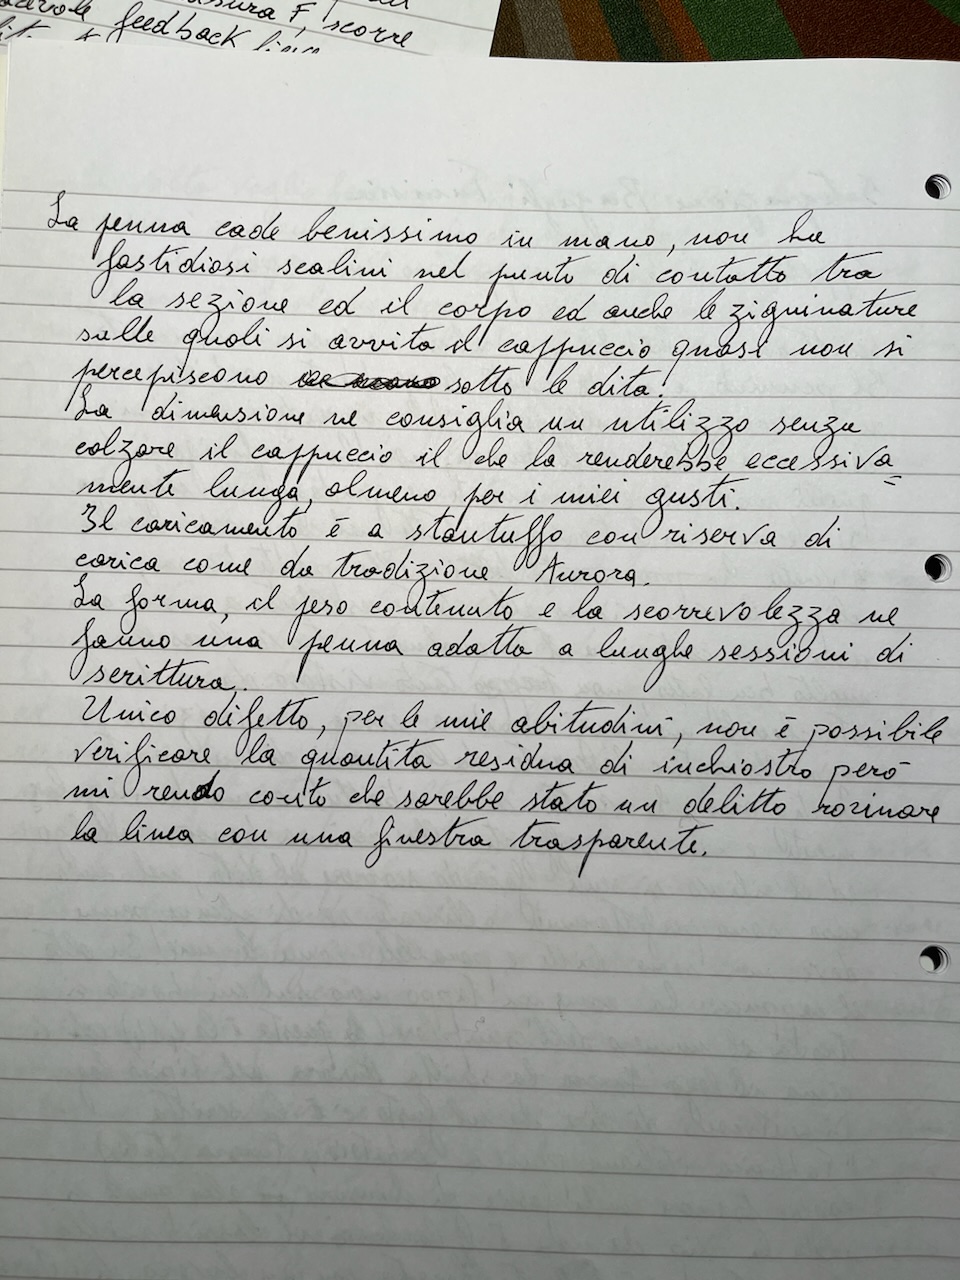 assura F, scorre
feedback linea
La penna cade benissimo in mano, non ha
fastidiosi scalini nel punto di contatto tra
la sezione ed il corpo ed anche le zigrinature
sulle quali si avvita il cappuccio quasi non si
percepiscono sotto le dita.
La dimensione ne consiglia un utilizzo senza
calzare il cappuccio il che la renderebbe eccessiva=
mente lunga, almeno per i miei gusti.
Il caricamento è a stantuffo con riserva di
carica come da tradizione Aurora.
La forma, il peso contenuto e la scorrevolezza ne
fanno una penna adatta a lunghe sessioni di
scrittura.
Unico difetto, per le mie abitudini, non è possibile
verificare la quantita residua di inchiostro però
mi rendo conto che sarebbe stato un delitto rovinare
la linea con una finestra trasparente.